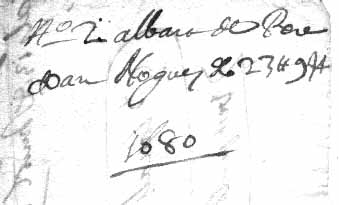 No 2 albara de Pere
Joan Noguer de 23 # 9 #
1080